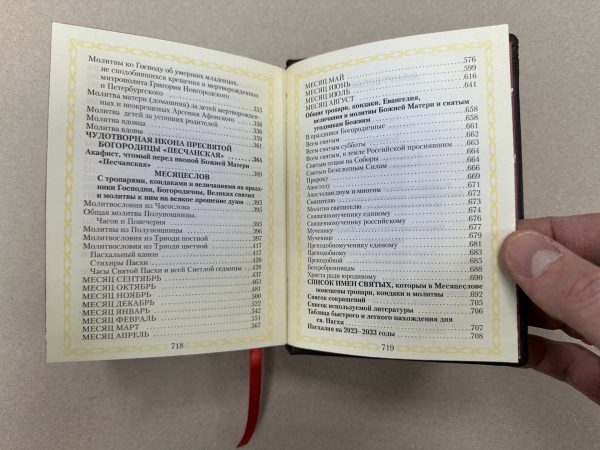 Молитвы ко Господу об умерших младенцах,
не сподобившихся крещения и мертворожденных
митрополита Григория Новгородского
и Петербургского
Молитва матери (дополнения) за детей мертворожден-
ных и некрещеных Арсения Афонского 355
Молитва детей за усопших родителей 356
Молитва вдовца 356
Молитва вдовы 359
ЧУДОТВОРНАЯ ИКОНА ПРЕСВЯТОЙ 361
БОГОРОДИЦЫ «ПЕСЧАНСКАЯ» 364
Акафист, чтомый перед иконой Божией Матери
«Песчанская» 369
МЕСЯЦЕСЛОВ
С тропарями, кондаками и величаниями на празд-
ники Господни, Богородичны, Великих святых
и молитвы к ним на всякое прошение души 395
Молитвословия из Часослова 395
Общая молитва Полунощницы,
Часов и Повечерия 395
Молитвы из Полунощницы 396
Молитвословия из Триоди постной 397
Молитвословия из Триоди цветной 417
Пасхальный канон 417
Стихиры Пасхи 426
Часы Святой Пасхи и всей Светлой седмицы 428
МЕСЯЦ СЕНТЯБРЬ 437
МЕСЯЦ ОКТЯБРЬ 463
МЕСЯЦ НОЯБРЬ 481
МЕСЯЦ ДЕКАБРЬ 500
МЕСЯЦ ЯНВАРЬ 522
МЕСЯЦ ФЕВРАЛЬ 542
МЕСЯЦ МАРТ 551
МЕСЯЦ АПРЕЛЬ 567
718
МЕСЯЦ МАЙ 576
МЕСЯЦ ИЮНЬ 599
МЕСЯЦ ИЮЛЬ 616
МЕСЯЦ АВГУСТ 641
Общие тропари, кондаки, Евангелия,
величания и молитвы Божией Матери и святым
угодникам Божиим 658
В праздники Богородичные 658
Всем святым 661
Всем святым субботы 664
Всем святым, в земле Российской просиявшим 664
Святым отцам на Соборы 666
Святым Безплотным Силам 664
Пророку 666
Апостолу 669
Апостолам двум и многим 671
Святителю 672
Молитва святителю 673
Священномученику единому 674
Священномученику российскому 676
Мученику 677
Мученице 679
Преподобномученику единому 681
Преподобному 683
Преподобной 685
Безсребренникам 688
Христа ради юродивому 690
СПИСОК ИМЕН СВЯТЫХ, которым в Месяцеслове
помещены тропари, кондаки и молитвы 692
Список сокращений 705
Список используемой литературы 706
Таблица быстрого и легкого нахождения дня
св. Пасхи 707
Пасхалия на 2023–2033 годы 708
719